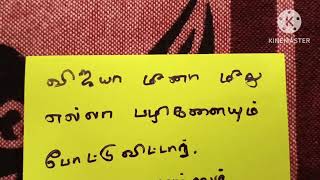 KINEMASTER
விஜயா மீனா மீது
எல்லா பழிகளையும்
போட்டுவிட்டார்.